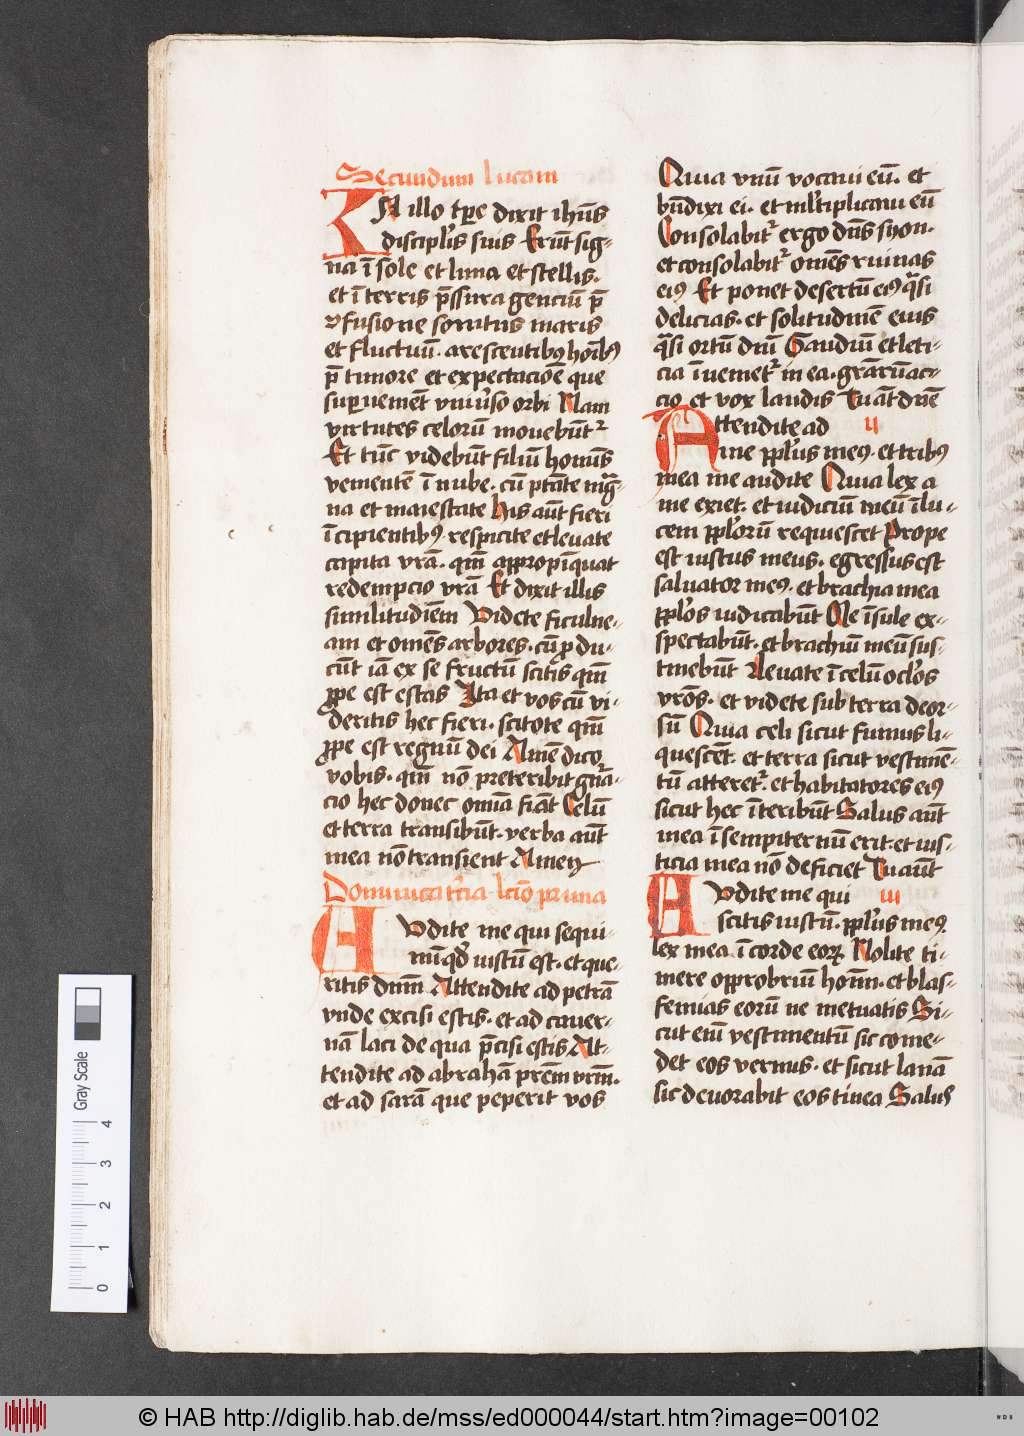 Secundum lucam
IN illo tp̄e dixit ihūs
discipl'is suis Erūt sig-
na ī sole et luna et stellis.
et ī terris p̄ssura genciū p̄
ꝯfusione sonitus maris
et fluctuū. arescentibꝰ hoīībꝰ
p̄ timore et expectacioē que
suꝑueniēt vniūso orbi Nam
virtutes celorū mouebūt᷑
Et tūc videbūt filiū hominis
venientē ī nube. cū ptāte mͣg-
na et maiestate his aūt fieri
īcipientibꝰ respicite et leuate
capita vrā. qm̄ appropīquat
redempcio vrā Et dixit illis
similitudīem Videte ficulne-
am et om̄es arbores. cū ꝓdu-
cūt iā ex se fructū scitis qm̄
ꝓpe est estas Ita et vos cū vi-
deritis hec fieri. scitote qm̄
ꝓpe est regnū dei Amē dico
vobis. qm̄ nō preteribit gn̄a-
cio hec donec omīa fiāt Celū
et terra transibūt. verba aūt
mea nō transient Amen
Dominica t'cia lc̄io prima
AVdite me qui sequi-
mī qd̛ iustū est. et que-
ritis dnm̄ Attendite ad petrā
vnde excisi estis. et ad cauer-
nā laci de qua p̄cisi estis At-
tendite ad abrahā prēm vrm̄.
et ad sarā que peperit vos
Quia vnū vocaui eū. et
bn̄dixi ei. et ml'tiplicaui eū
Consolabit᷑ ergo dn̄s syon.
et consolabit᷑ om̄es ruinas
eiꝰ Et ponet desertū eiꝰ qͣsi
delicias. et solitudinē eius
qͣsi ortū dnī Gaudiū et leti-
cia īueniet᷑ in ea. grār̄ū ac-
cio et vox laudis Tu aūt dn̄e
Attendite ad ii
me ppl'us meꝰ. et tribꝰ
mea me audite Quia lex a
me exiet. et iudiciū meū ī lu-
cem ppl'orū requiescet Prope
est iustus meus. egressus est
saluator meꝰ. et brachia mea
ppl'os iudicabūt Me īsule ex-
spectabūt. et brachiū meū sus-
tinebūt Leuate ī celū ocl'os
vrōs. et videte sub terra deor-
sū Quia celi sicut fumus li-
quescēt. et terra sicut vestimē-
tū atteret᷑. et habitatores eiꝰ
sicut hec īteribūt Salus aūt
mea ī sempiternū erit. et ius-
ticia mea nō deficiet Tu aūt
AVdite me qui iii
scitis iustū. ppl'us meꝰ
lex mea ī corde eoꝝ Nolite ti-
mere opprobriū hoīm. et blas-
femias eorū ne metuatis Si-
cut enī vestimentū sic come-
det eos vermis. et sicut lanā
sic deuorabit eos tinea Salus
Gray Scale
0 1 2 3 4
© HAB http://diglib.hab.de/mss/ed000044/start.htm?image=00102